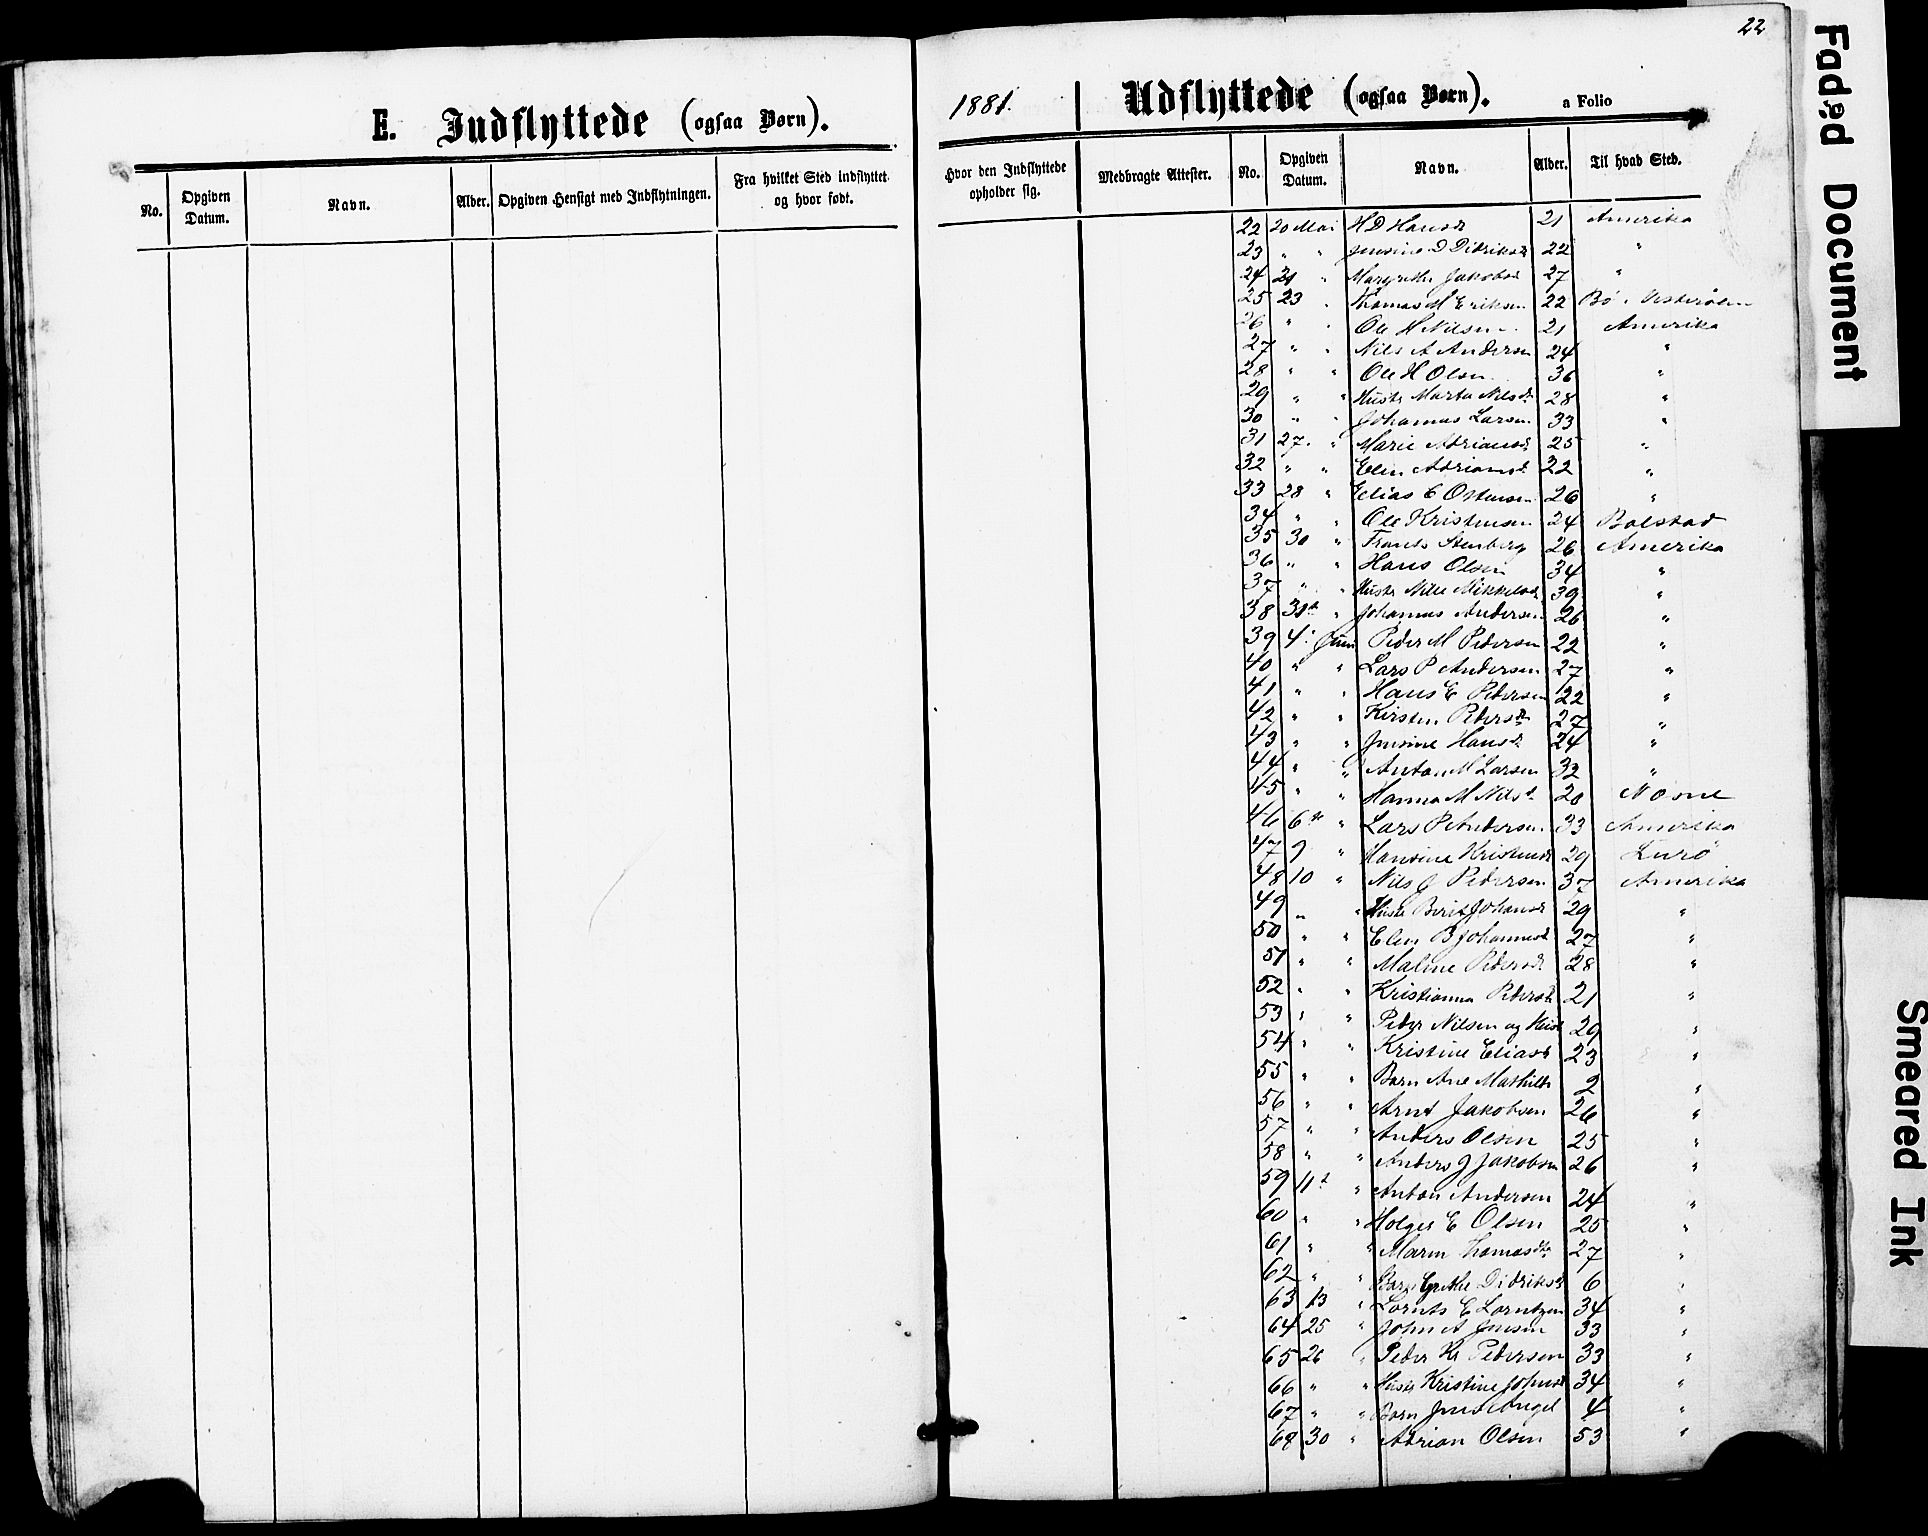 22
E. Indflyttede (ogsaa Børn).
1881.
Udflyttede (ogsaa Børn).
a Folio
No.
Opgiven Datum.
Navn.
Alder.
Opgiven Hensigt med Indflytningen.
Fra hvilket Sted indflyttet og hvor født.
Hvor den Indflyttede opholder sig.
Medbragte Attester.
No.
Opgiven Datum.
Navn.
Alder.
Til hvad Sted.
22 20 Mai H D Hansd 21 Amerika
23 " " Jensine D Didriksd 22 "
24 21 " Margrethe Jakobsd 27 "
25 23 " Thomas M Eriksen 22 Bø i Vesterålen
26 " " Ole H Nilsen 21 Amerika
27 " " Nils A Andersen 24 "
28 " " Ole H Olsen 36 "
29 " " Hustr Marta Nilsd 28 "
30 " " Johannes Larsen 33 "
31 27 " Marie Adriansd 25 "
32 " " Elen Adriansd 22 "
33 28 " Elias E Ostensen 26 "
34 " " Ole Kristensen 24 Bolstad
35 30 " Frants Stenberg 26 Amerika
36 " " Hans Olsen 34 "
37 " " Hustr Mikkelsd 39 "
38 31te " Johannes Andersen 26 "
39 4 Juni Peder M Pedersen 22 "
40 " " Lars P Andersen 27 "
41 " " Hans E Pedersen 22 "
42 " " Kirsten Pedersd 27 "
43 " " Jensine Hansd 24 "
44 " " Anton M Larsen 32 "
45 " " Hanna M Nilsd 20 Næsne
46 6te " Lars P Andersen 33 Amerika
47 9 " Hansine Kristensd 29 Lurø
48 10 " Nils J Pedersen 37 Amerika
49 " " Hustr Berit Johansd 29 "
50 " " Elen B Johannesd 27 "
51 " " Maline Pedersd 28 "
52 " " Kristianna Pedersd 21 "
53 " " Peder Nilsen og Hust 29 "
54 " " Kristine Eliasd 23 "
55 " " Barn Ane Mathilde 2 "
56 " " Arnt Jakobsen 26 "
57 " " Anders Olsen 25 "
58 " " Anders J Jakobsen 26 "
59 11te " Anton Andersen 24 "
60 " " Holger E Olsen 25 "
61 " " Maren Thomasdtr 27 "
62 " " Barn Grethe Didriksd 6 "
63 13 " Lornts E Lorntzen 34 "
64 25 " John A Jensen 33 "
65 26 " Peder Kr Pedersen 33 "
66 " " Hustr Kristine Johnsd 34 "
67 " " Barn Jens Angel 4 "
68 30 " Adrian Olsen 53 "
Faded Document
Smeared Ink